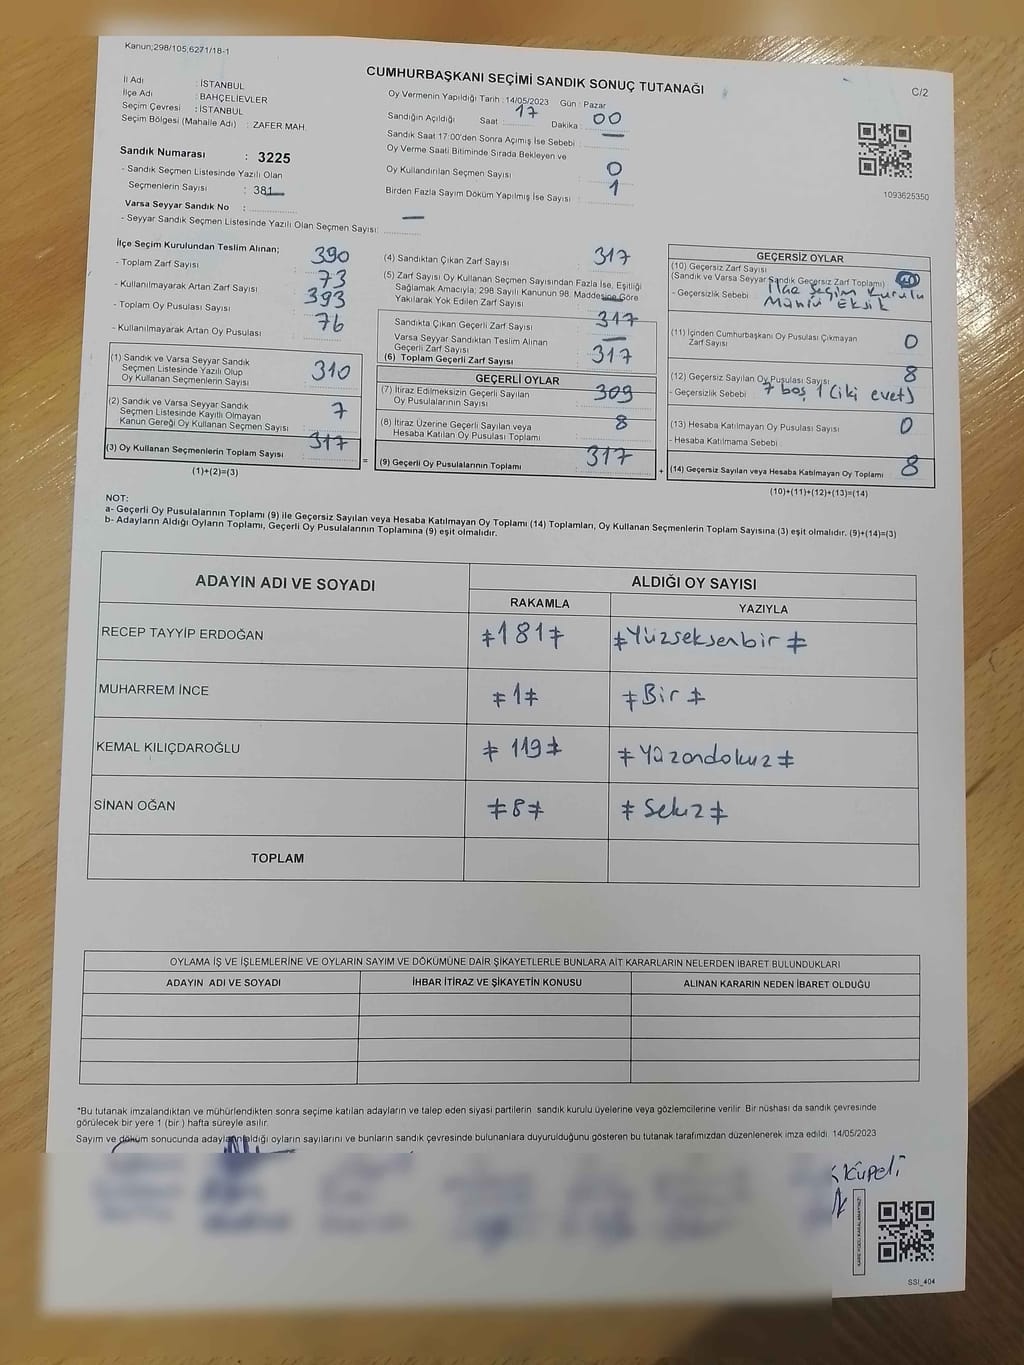 Kanun;298/105,6271/18-1
CUMHURBAŞKANI SEÇİMİ SANDIK SONUÇ TUTANAĞI
C/2
İl Adı : İSTANBUL
İlçe Adı : BAHÇELİEVLER
Seçim Çevresi : İSTANBUL
Seçim Bölgesi (Mahalle Adı) : ZAFER MAH.
Oy Vermenin Yapıldığı Tarih : 14/05/2023 Gün : Pazar
Sandığın Açıldığı Saat : 17 Dakika : 00
Sandık Saat 17:00'den Sonra Açımış İse Sebebi : —
Oy Verme Saati Bitiminde Sırada Bekleyen ve
Oy Kullandırılan Seçmen Sayısı : 0
Birden Fazla Sayım Döküm Yapılmış İse Sayısı : 1
1093625350
Sandık Numarası : 3225
- Sandık Seçmen Listesinde Yazılı Olan
Seçmenlerin Sayısı : 381
Varsa Seyyar Sandık No :
- Seyyar Sandık Seçmen Listesinde Yazılı Olan Seçmen Sayısı: —
İlçe Seçim Kurulundan Teslim Alınan;
- Toplam Zarf Sayısı : 390
- Kullanılmayarak Artan Zarf Sayısı : 73
- Toplam Oy Pusulası Sayısı : 393
- Kullanılmayarak Artan Oy Pusulası : 76
(1) Sandık ve Varsa Seyyar Sandık
Seçmen Listesinde Yazılı Olup
Oy Kullanan Seçmenlerin Sayısı : 310
(2) Sandık ve Varsa Seyyar Sandık
Seçmen Listesinde Kayıtlı Olmayan
Kanun Gereği Oy Kullanan Seçmen Sayısı : 7
(3) Oy Kullanan Seçmenlerin Toplam Sayısı : 317
(1)+(2)=(3)
=
(4) Sandıktan Çıkan Zarf Sayısı : 317
(5) Zarf Sayısı Oy Kullanan Seçmen Sayısından Fazla İse, Eşitliği
Sağlamak Amacıyla; 298 Sayılı Kanunun 98. Maddesine Göre
Yakılarak Yok Edilen Zarf Sayısı : —
Sandıkta Çıkan Geçerli Zarf Sayısı : 317
Varsa Seyyar Sandıktan Teslim Alınan
Geçerli Zarf Sayısı : —
(6) Toplam Geçerli Zarf Sayısı : 317
GEÇERLİ OYLAR
(7) İtiraz Edilmeksizin Geçerli Sayılan
Oy Pusulalarının Sayısı : 309
(8) İtiraz Üzerine Geçerli Sayılan veya
Hesaba Katılan Oy Pusulası Toplamı : 8
(9) Geçerli Oy Pusulalarının Toplamı : 317
+
GEÇERSİZ OYLAR
(10) Geçersiz Zarf Sayısı
(Sandık ve Varsa Seyyar Sandık Geçersiz Zarf Toplamı) :
- Geçersizlik Sebebi : İlçe Seçim Kurulu
Mührü Eksik
(11) İçinden Cumhurbaşkanı Oy Pusulası Çıkmayan
Zarf Sayısı : 0
(12) Geçersiz Sayılan Oy Pusulası Sayısı : 8
- Geçersizlik Sebebi : 7 boş 1 (iki evet)
(13) Hesaba Katılmayan Oy Pusulası Sayısı : 0
- Hesaba Katılmama Sebebi :
(14) Geçersiz Sayılan veya Hesaba Katılmayan Oy Toplamı : 8
(10)+(11)+(12)+(13)=(14)
NOT:
a- Geçerli Oy Pusulalarının Toplamı (9) ile Geçersiz Sayılan veya Hesaba Katılmayan Oy Toplamı (14) Toplamları, Oy Kullanan Seçmenlerin Toplam Sayısına (3) eşit olmalıdır. (9)+(14)=(3)
b- Adayların Aldığı Oyların Toplamı, Geçerli Oy Pusulalarının Toplamına (9) eşit olmalıdır.
ADAYIN ADI VE SOYADI
ALDIĞI OY SAYISI
RAKAMLA YAZIYLA
RECEP TAYYİP ERDOĞAN ≠181≠ ≠Yüzseksenbir≠
MUHARREM İNCE ≠1≠ ≠Bir≠
KEMAL KILIÇDAROĞLU ≠119≠ ≠Yüzondokuz≠
SİNAN OĞAN ≠8≠ ≠Sekiz≠
TOPLAM
OYLAMA İŞ VE İŞLEMLERİNE VE OYLARIN SAYIM VE DÖKÜMÜNE DAİR ŞİKAYETLERLE BUNLARA AİT KARARLARIN NELERDEN İBARET BULUNDUKLARI
ADAYIN ADI VE SOYADI İHBAR İTİRAZ VE ŞİKAYETİN KONUSU ALINAN KARARIN NEDEN İBARET OLDUĞU
*Bu tutanak imzalandıktan ve mühürlendikten sonra seçime katılan adayların ve talep eden siyasi partilerin sandık kurulu üyelerine veya gözlemcilerine verilir. Bir nüshası da sandık çevresinde
görülecek bir yere 1 (bir) hafta süreyle asılır.
Sayım ve döküm sonucunda adayların aldığı oyların sayılarını ve bunların sandık çevresinde bulunanlara duyurulduğunu gösteren bu tutanak tarafımızdan düzenlenerek imza edildi. 14/05/2023
Küpeli
KARE KODU KARALAMAYINIZ!
SSİ_404